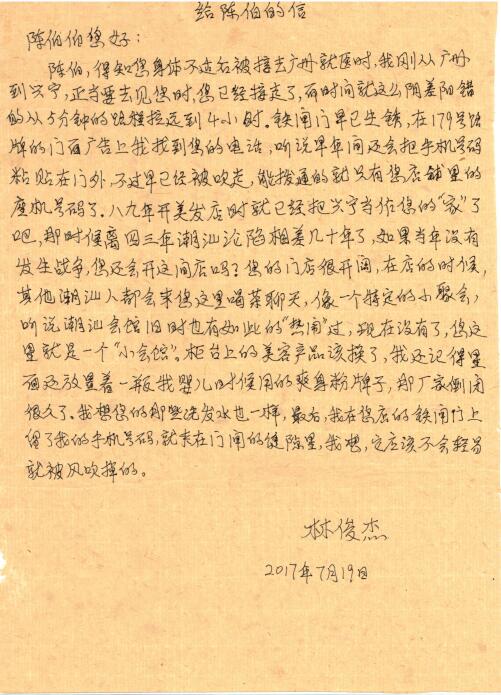 给陈伯的信
陈伯伯您好：
陈伯，得知您身体不适后被接去广州就医时，我刚从广州
到兴宁，正当要去见您时，您已经接走了，有时间就这么阴差阳错
的从5分钟的路程拉远到4小时。铁闸门早已生锈，在179号路
牌的门面广告上我找到您的电话，听说早年间还会把手机号码
粘贴在门外，不过早已经被吹走，能拨通的就只有您店铺里的
座机号码了。八九年开美发店时就已经把兴宁当作您的“家”了
吧，那时候离四三年潮汕沦陷相差几十年了，如果当年没有
发生战争，您还会开这间店吗？您的门店很开阔，在店的时候，
其他潮汕人都会来您这里喝茶聊天，像一个特定的小聚会，
听说潮汕会馆旧时也有如此的“热闹”过，现在没有了，您这
里就是一个“小会馆”。柜台上的美容产品该换了，我还记得里
面还放置着一瓶我婴儿时候用的爽身粉牌子，那厂家倒闭
很久了。我想您的那些洗发水也一样，最后，我在您店的铁闸门上
留了我的手机号码，就夹在门闸的缝隙里，我想，它应该不会轻易
就被风吹掉的。
林俊杰
2017年7月19日